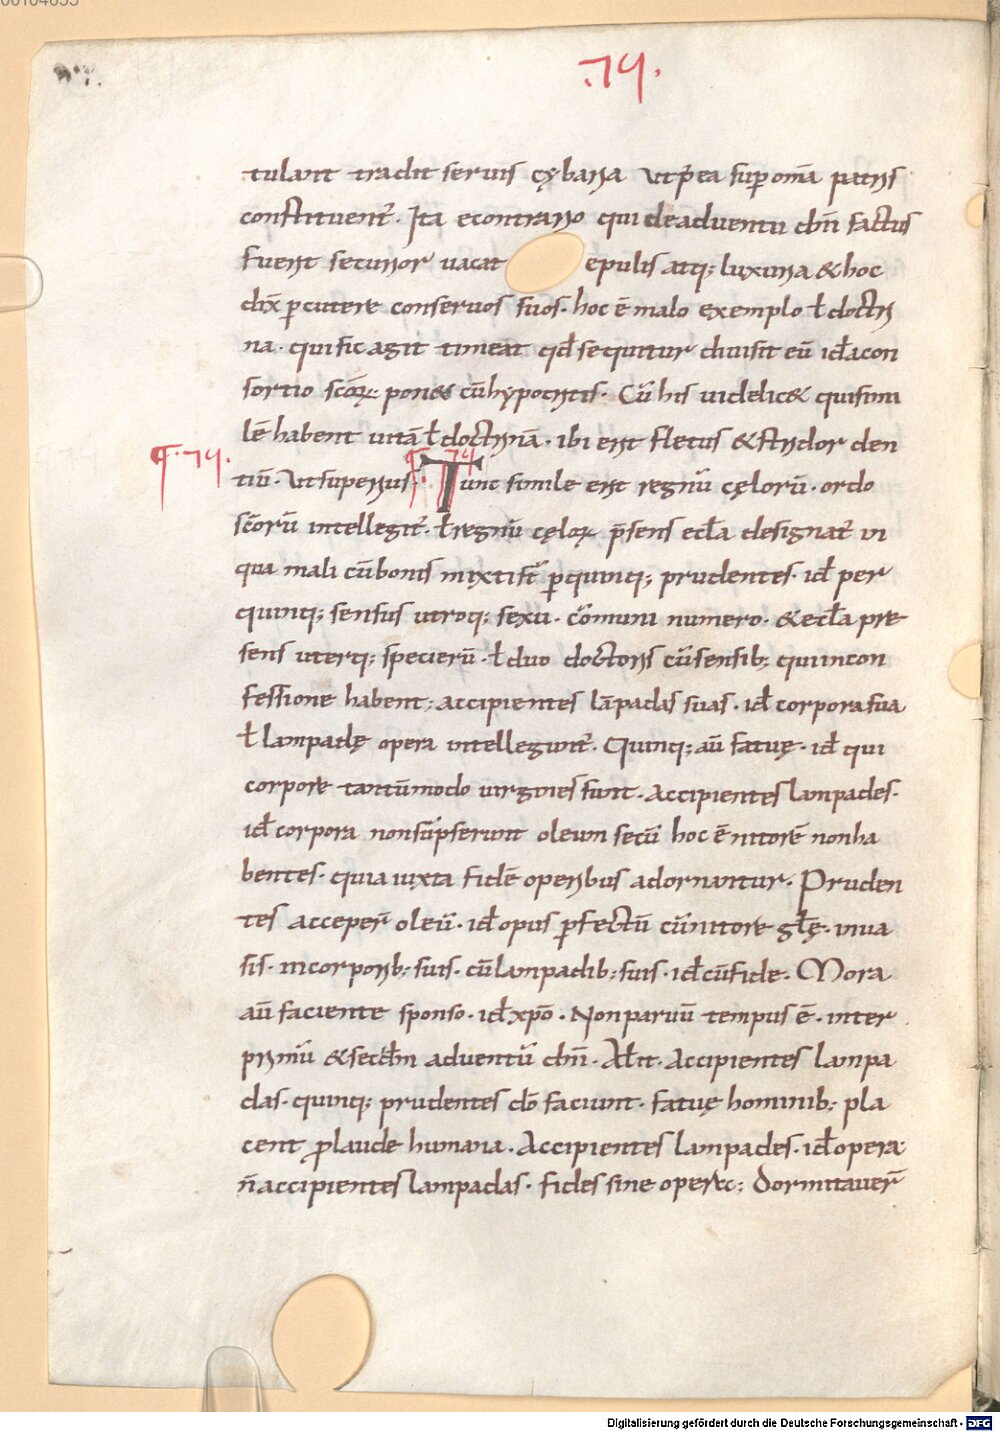 .79.
tulant tradit seruis cybaria ut p̄ea sup omā patris
constituent̄. Ita econtrario qui de aduentu dn̄i factus
fuerit securior uacat epulis atq; luxuria & hoc
dix̄ pcutere conseruos suos. hoc ē malo exemplo ł doctri
na. qui sic agit timeat qd̄ sequitur diuisit eū id̄ a con
sortio scōꝝ pon& cū hypocritis. Cū his uidelic& qui simi
lē habent uitā ł doctrinā. ibi erit fletus & stridor den
¶.79. tiū. Ut superius. ¶.79 Tunc simile erit regnū cęlorū. ordo
scōrū intellegit̄. ł regnū cęloꝝ p̄sens eccła designat̄ in
qua mali cū bonis mixti st̄ p quinq; prudentes. id̄ per
quinq; sensus utroq; sexu. cōmuni numero. & eccła pre
sens uterq; specierū. ł duo doctoris cū sensib; qui in con
fessione habent; accipientes lāpadas suas. id̄ corpora sua
ł lampadę opera intellegunt̄. Quinq; aū fatuę. id̄ qui
corpore tantūmodo uirgines sunt. Accipientes lampades.
id̄ corpora non sūpserunt oleum secū hoc ē nitorē non ha
bentes. quia iuxta fidē operibus adornantur. Pruden
tes acceper̄ oleū. id̄ opus pfectū cū nitore glę. in ua
sis. in corporib; suis. cū lampadib; suis. id̄ cū fide. Mora
aū faciente sponso. id̄ xp̄o. Non paruū tempus ē. inter
primū & secdm̄ aduentū dn̄i. Alit̄. Accipientes lampa
das. quinq; prudentes dō faciunt. fatuę hominib; pla
cent p laude humana. Accipientes lampades. id̄ opera
n̄ accipientes lampadas. fides sine opere; Dormitauer̄
Digitalisierung gefördert durch die Deutsche Forschungsgemeinschaft - DFG